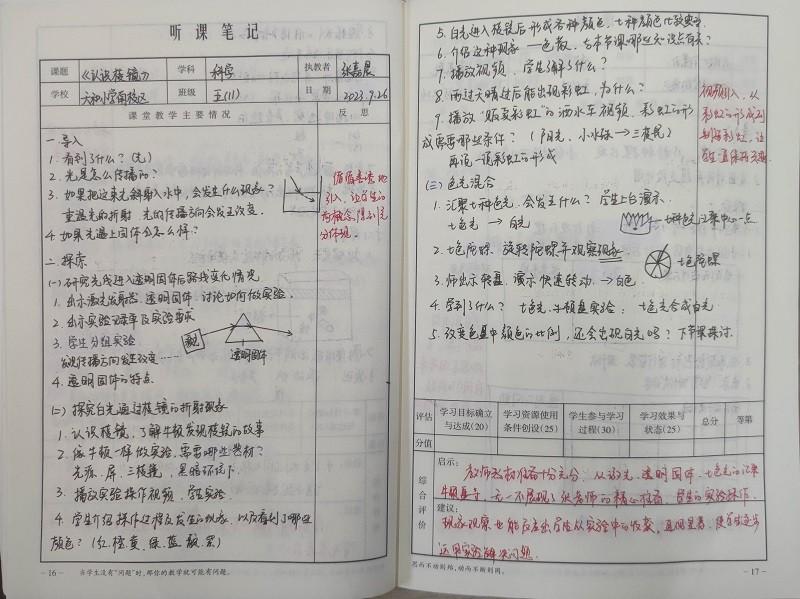 听课笔记
课题 《认识棱镜》 学科 科学 执教者 张嘉晨
学校 六和小学南校区 班级 五(11) 日期 2023.9.26
课堂教学主要情况 反思
一、导入
1. 看到了什么？(光)
2. 光是怎么传播的？
3. 如果把这束光斜射入水中，会发生什么现象？
重温光的折射 光的传播方向会发生改变.
4. 如果光遇上固体会怎么样？
循循善诱地
引入，让学生的
前概念得以充
分体现.
二、探索
(一) 研究光线进入透明固体后路线变化情况
1. 出示激光发射器、透明固体，讨论如何做实验.
2. 出示实验记录单及实验要求
3. 学生分组实验
发现传播方向发生改变……
激光
透明固体
4. 透明固体的特点.
(二) 探究白光通过棱镜的折射现象
1. 认识棱镜，了解牛顿发现棱镜的故事
2. 像牛顿一样做实验，需要哪些器材？
光源、屏、三棱镜，黑暗环境下.
3. 播放实验操作视频，学生实验.
4. 学生介绍操作过程及发生的现象，以及看到了哪些
颜色？(红、橙、黄、绿、蓝、靛、紫)
-16- 当学生没有“问题”时，那你的教学就可能有问题。
5. 白光进入棱镜后形成各种颜色，七种颜色比较典型.
6. 介绍这种现象—色散，与本节课哪些知识点有关？
7. 播放视频，学生解了什么？
8. 雨过天晴过后能出现彩虹，为什么？
9. 播放“贩卖彩虹”的洒水车视频，彩虹的形
成需要哪些条件？(阳光、小水珠→三棱镜)
再说一说彩虹的形成
视频引入，从
彩虹的形成到
制造彩虹，让
(三) 色光混合
1. 汇聚七种色光，会发生什么？学生上台演示.
七色光 → 白光
七种色光汇聚中心一点
2. 七色陀螺 旋转陀螺并观察现象
七色陀螺
3. 师出示转盘，演示快速转动 → 白色.
4. 学到了什么？ 七色光，牛顿盘实验：七色光合成白光
5. 改变色盘中颜色的比例，还会出现白光吗？下节课探讨.
评估 学习目标确立与达成(20) 学习资源使用条件创设(25) 学生参与学习过程(30) 学习效果与状态(25) 总分 等第
分值
综合评价
启示：教师教材准备十分充分，从激光、透明固体、七色光的汇聚
牛顿盘等，无一不展现了张老师的精心准备，学生的实验操作、
建议：现象观察也能反应出学生从实验中的收获，直观显著，使学生逐步
运用实验解决问题.
思而不动则殆，动而不断则罔。 -17-